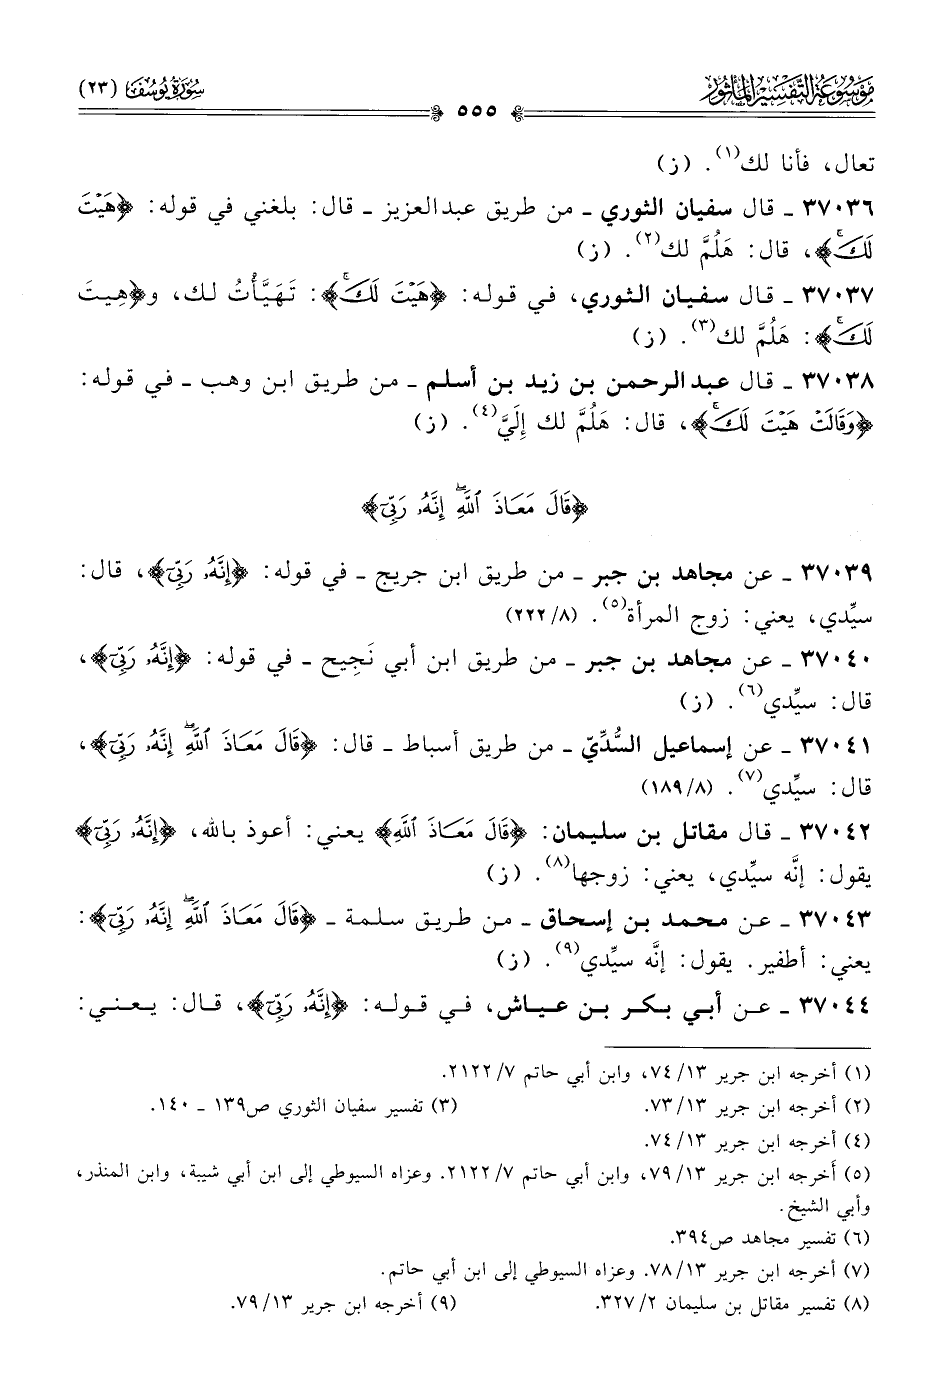 موسوعة التفسير المأثور
٥٥٥
سورة يوسف (٢٣)
تعال، فأنا لك(١). (ز)
٣٧٠٣٦ ـ قال سفيان الثوري ـ من طريق عبدالعزيز ـ قال: بلغني في قوله: ﴿هَيْتَ
لَكَۚ﴾، قال: هَلُمَّ لك(٢). (ز)
٣٧٠٣٧ ـ قال سفيان الثوري، في قوله: ﴿هَيْتَ لَكَۚ﴾: تَهَيَّأْتُ لك، و﴿هِيتَ
لَكَۚ﴾: هَلُمَّ لك(٣). (ز)
٣٧٠٣٨ ـ قال عبدالرحمن بن زيد بن أسلم ـ من طريق ابن وهب ـ في قوله:
﴿وَقَالَتْ هَيْتَ لَكَۚ﴾، قال: هَلُمَّ لك إِلَيَّ(٤). (ز)
﴿قَالَ مَعَاذَ ٱللَّهِۖ إِنَّهُۥ رَبِّيٓ﴾
٣٧٠٣٩ ـ عن مجاهد بن جبر ـ من طريق ابن جريج ـ في قوله: ﴿إِنَّهُۥ رَبِّيٓ﴾، قال:
سيِّدي، يعني: زوج المرأة(٥). (٨/ ٢٢٢)
٣٧٠٤٠ ـ عن مجاهد بن جبر ـ من طريق ابن أبي نَجِيح ـ في قوله: ﴿إِنَّهُۥ رَبِّيٓ﴾،
قال: سيِّدي(٦). (ز)
٣٧٠٤١ ـ عن إسماعيل السُّدِّيّ ـ من طريق أسباط ـ قال: ﴿قَالَ مَعَاذَ ٱللَّهِۖ إِنَّهُۥ رَبِّيٓ﴾،
قال: سيِّدي(٧). (٨/ ١٨٩)
٣٧٠٤٢ ـ قال مقاتل بن سليمان: ﴿قَالَ مَعَاذَ ٱللَّهِ﴾ يعني: أعوذ بالله، ﴿إِنَّهُۥ رَبِّيٓ﴾
يقول: إنَّه سيِّدي، يعني: زوجها(٨). (ز)
٣٧٠٤٣ ـ عن محمد بن إسحاق ـ من طريق سلمة ـ ﴿قَالَ مَعَاذَ ٱللَّهِۖ إِنَّهُۥ رَبِّيٓ﴾:
يعني: أطفير. يقول: إنَّه سيِّدي(٩). (ز)
٣٧٠٤٤ ـ عن أبي بكر بن عياش، في قوله: ﴿إِنَّهُۥ رَبِّيٓ﴾، قال: يعني:
(١) أخرجه ابن جرير ١٣/ ٧٤، وابن أبي حاتم ٧/ ٢١٢٢.
(٢) أخرجه ابن جرير ١٣/ ٧٣. (٣) تفسير سفيان الثوري ص١٣٩ ـ ١٤٠.
(٤) أخرجه ابن جرير ١٣/ ٧٤.
(٥) أخرجه ابن جرير ١٣/ ٧٩، وابن أبي حاتم ٧/ ٢١٢٢. وعزاه السيوطي إلى ابن أبي شيبة، وابن المنذر،
وأبي الشيخ.
(٦) تفسير مجاهد ص٣٩٤.
(٧) أخرجه ابن جرير ١٣/ ٧٨. وعزاه السيوطي إلى ابن أبي حاتم.
(٨) تفسير مقاتل بن سليمان ٢/ ٣٢٧. (٩) أخرجه ابن جرير ١٣/ ٧٩.